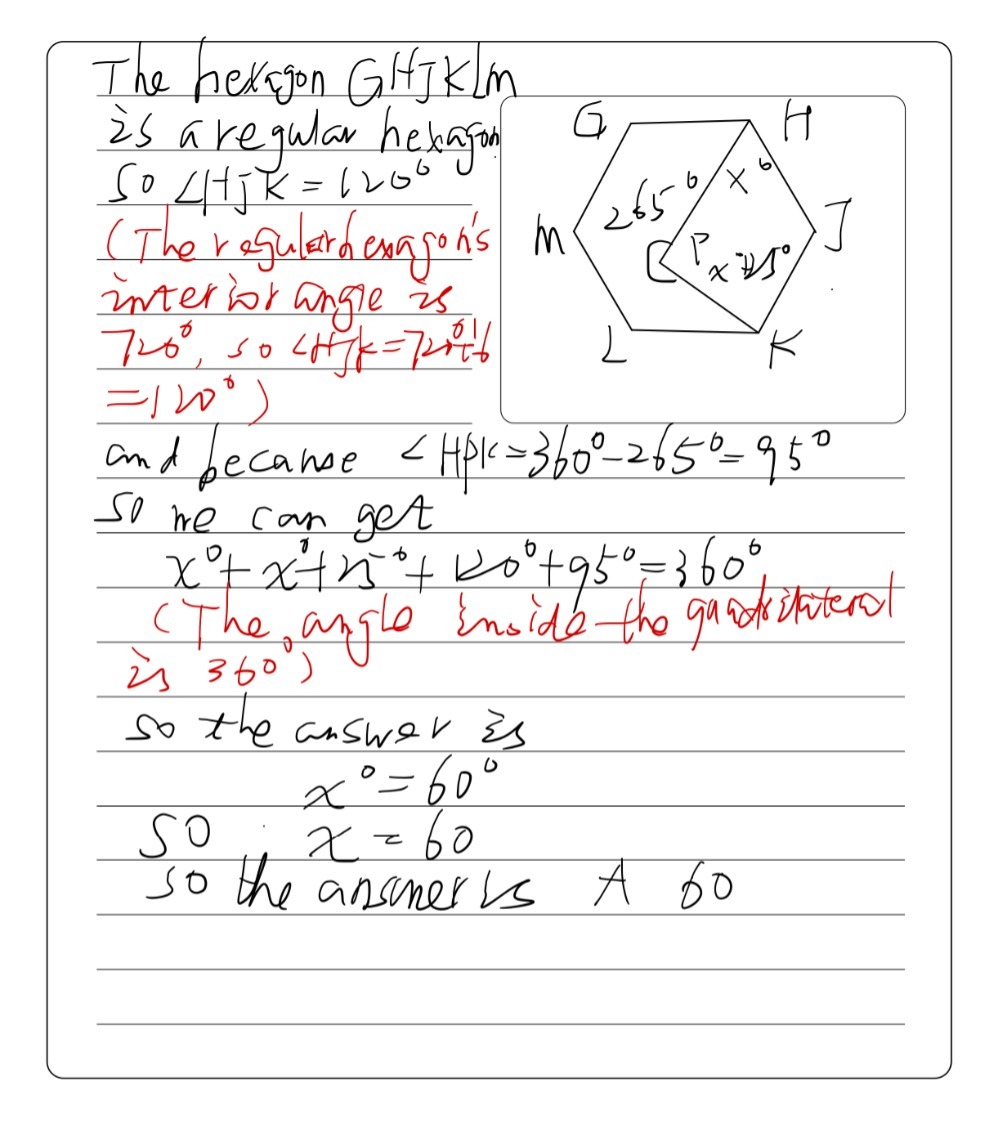 The hexagon GHJKLM
is a regular hexagon
so ∠HJK = 120°
(The regular hexagon's
interior angle is
720°, so ∠HJK=720°÷6
=120°)
G
H
265°
x°
M
P
J
L
K
and because ∠HPK=360°-265°=95°
so we can get
x°+x°+25°+120°+95°=360°
(The angle inside the quadrilateral
is 360°)
so the answer is
x°=60°
so x=60
so the answer is A 60